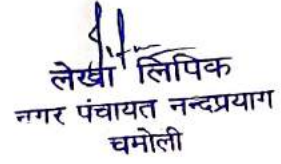 लेखा लिपिक
नगर पंचायत नन्दप्रयाग
चमोली